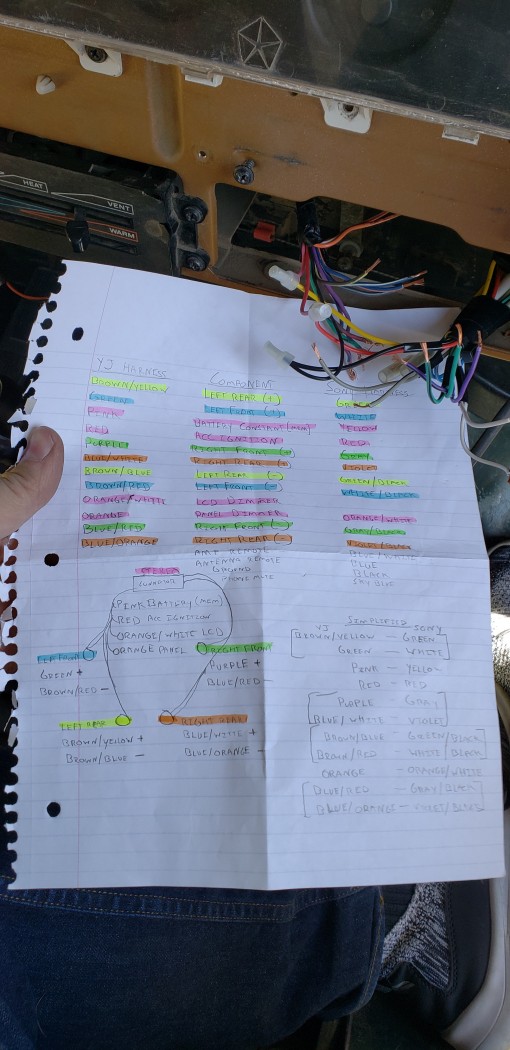 HEAT
VENT
WARM
YJ HARNESS COMPONENT SONY HARNESS
BROWN/YELLOW LEFT REAR (+) GREEN
GREEN LEFT FRONT (+) WHITE
PINK BATTERY CONSTANT (MEM) YELLOW
RED ACC IGNITION RED
PURPLE RIGHT FRONT (+) GRAY
BLUE/WHITE RIGHT REAR (+) VIOLET
BROWN/BLUE LEFT REAR (-) GREEN/BLACK
BROWN/RED LEFT FRONT (-) WHITE/BLACK
ORANGE/WHITE LCD DIMMER
ORANGE PANEL DIMMER ORANGE/WHITE
BLUE/RED RIGHT FRONT (-) GRAY/BLACK
BLUE/ORANGE RIGHT REAR (-) VIOLET/BLACK
AMP REMOTE
ANTENNA REMOTE BLUE
GROUND BLACK
PHONE MUTE SKY BLUE
STEREO
PINK BATTERY (MEM)
RED ACC IGNITION
ORANGE/WHITE LCD
ORANGE PANEL
LEFT FRONT
GREEN +
BROWN/RED -
RIGHT FRONT
PURPLE +
BLUE/RED -
LEFT REAR
BROWN/YELLOW +
BROWN/BLUE -
RIGHT REAR
BLUE/WHITE +
BLUE/ORANGE -
SIMPLIFIED
YJ SONY
BROWN/YELLOW - GREEN
GREEN - WHITE
PINK - YELLOW
RED - RED
PURPLE - GRAY
BLUE/WHITE - VIOLET
BROWN/BLUE - GREEN/BLACK
BROWN/RED - WHITE/BLACK
ORANGE - ORANGE/WHITE
BLUE/RED - GRAY/BLACK
BLUE/ORANGE - VIOLET/BLACK